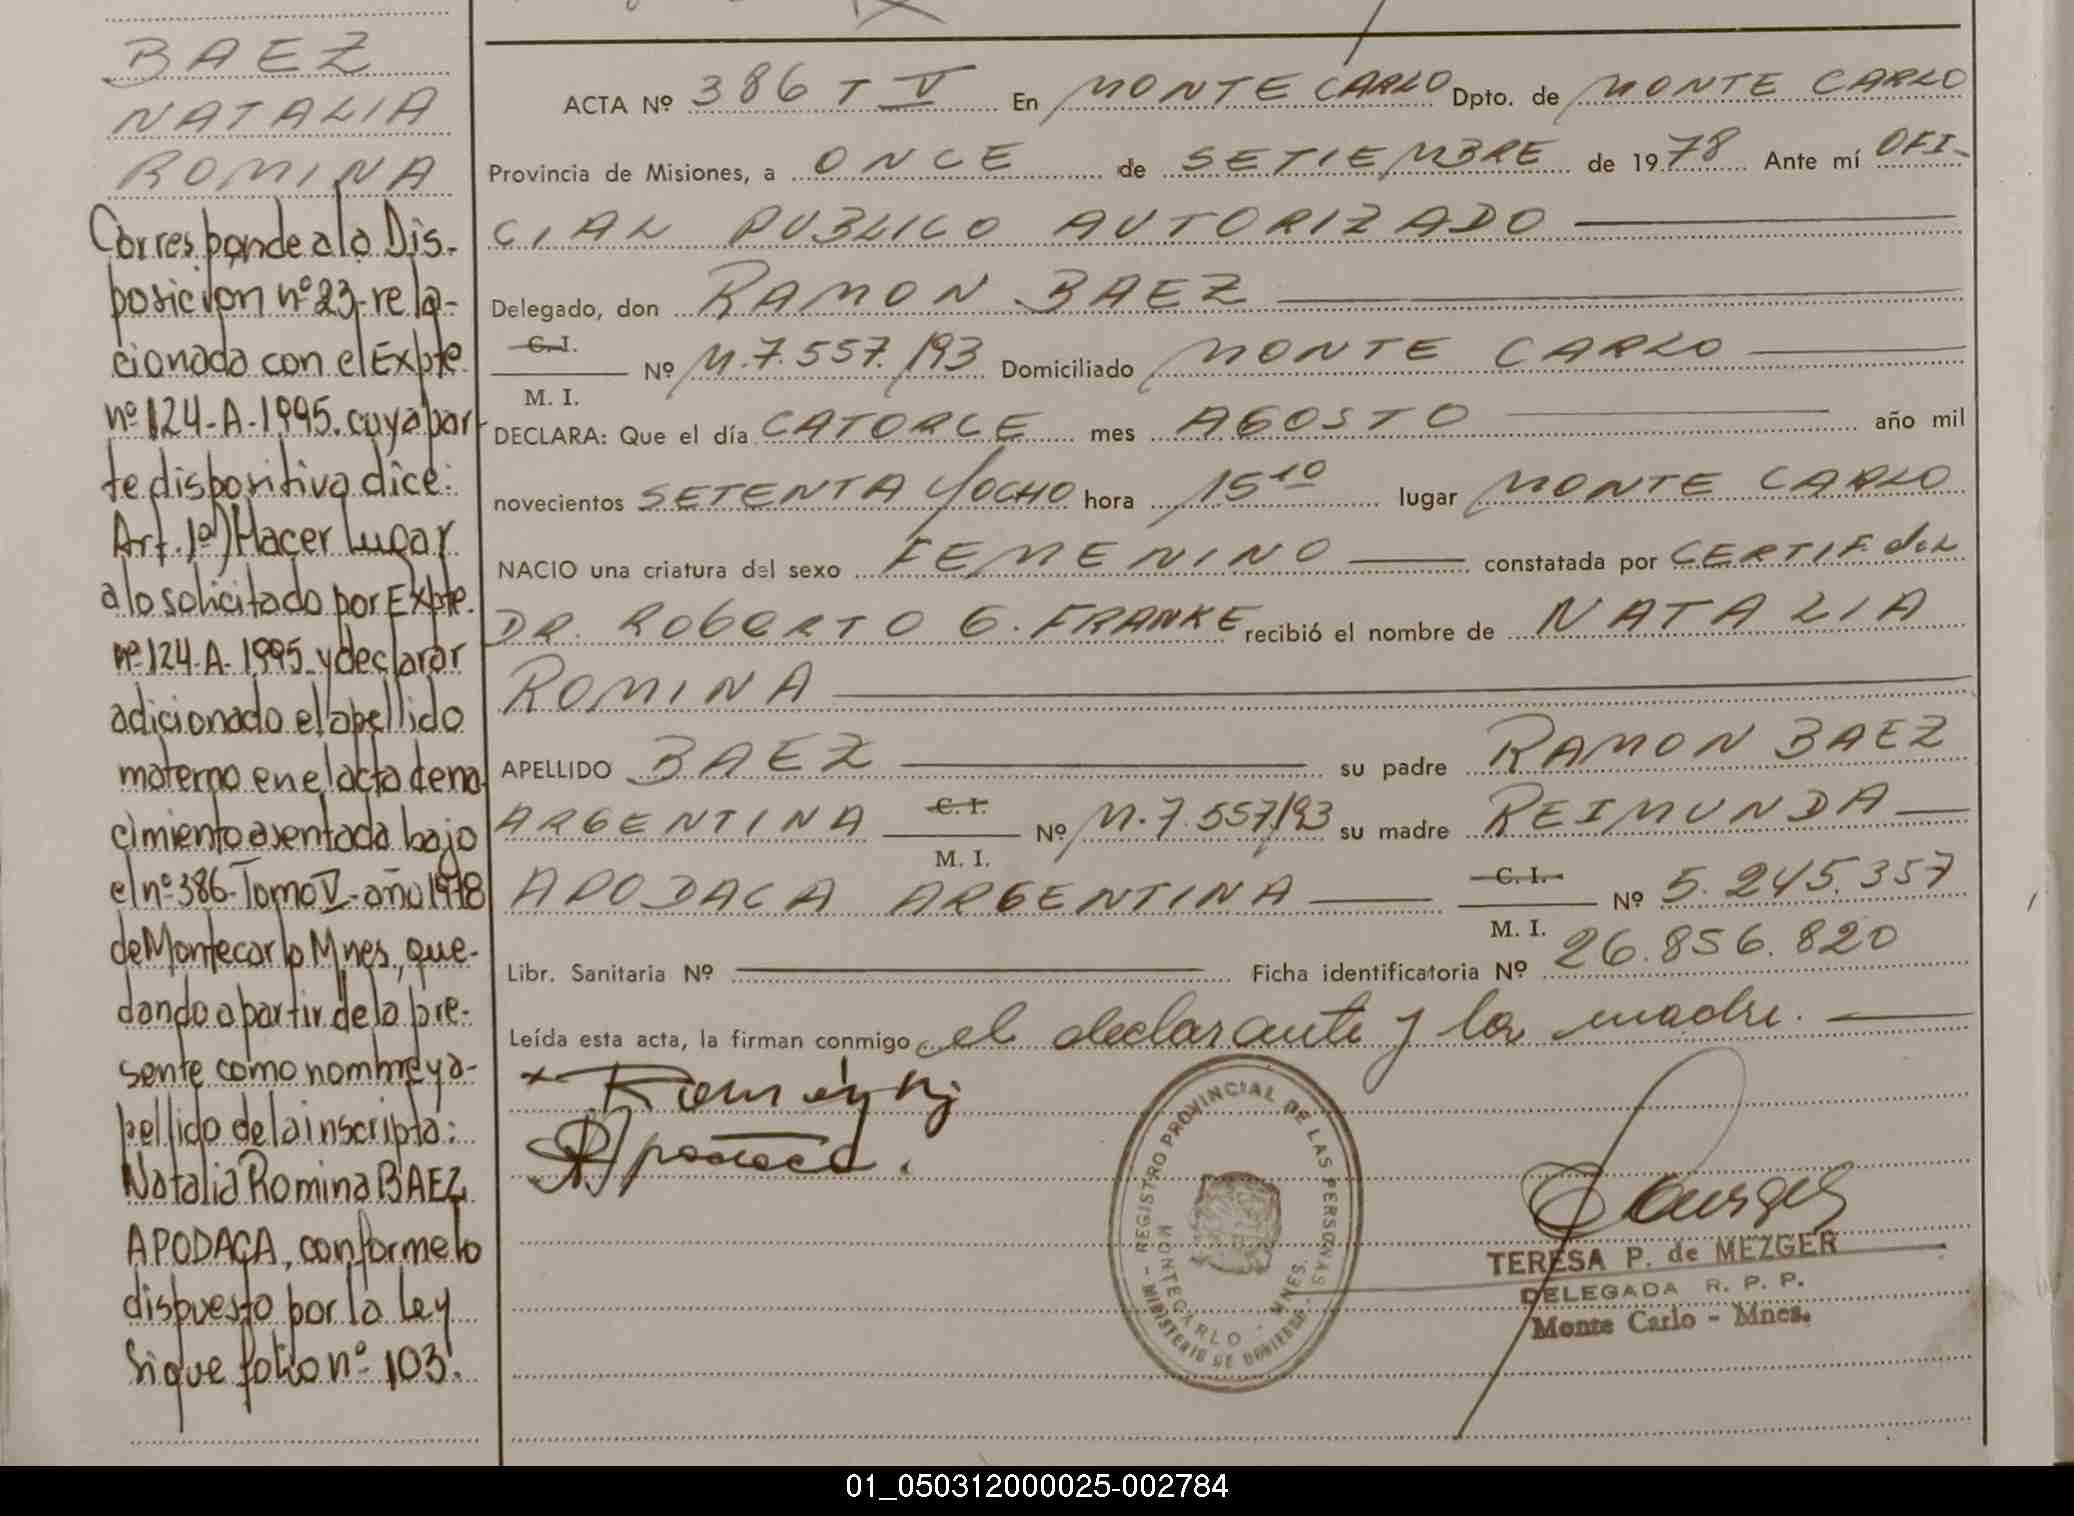 BAEZ
NATALIA
ROMINA
Corresponde a la Dis-
posicion nº 23-rela-
cionada con el Expte.
nº 124-A-1995. cuya par-
te dispositiva dice:
Art. 1º) Hacer lugar
a lo solicitado por Expte.
nº 124-A-1995 y declarar
adicionado el apellido
materno en el acta de na-
cimiento asentada bajo
el nº 386-Tomo V-año 1978
de Montecarlo Mnes., que-
dando a partir de la pre-
sente como nombre y a-
pellido de la inscripta:
Natalia Romina BAEZ
APODACA, conforme lo
dispuesto por la Ley
Sigue folio nº 103.
ACTA Nº 386 T V En MONTE CARLO Dpto. de MONTE CARLO
Provincia de Misiones, a ONCE de SETIEMBRE de 1978 Ante mí OFI-
CIAL PUBLICO AUTORIZADO
Delegado, don RAMON BAEZ
C. I.
M. I.
Nº M.7.557.193 Domiciliado MONTE CARLO
DECLARA: Que el día CATORCE mes AGOSTO año mil
novecientos SETENTA Y OCHO hora 15 10 lugar MONTE CARLO
NACIO una criatura del sexo FEMENINO constatada por CERTIF. del
DR. ROBERTO G. FRANKE recibió el nombre de NATALIA
ROMINA
APELLIDO BAEZ su padre RAMON BAEZ
ARGENTINA C. I. M. I. Nº M.7.557.193 su madre REIMUNDA
APODACA ARGENTINA C. I. M. I. Nº 5.245.357
Libr. Sanitaria Nº Ficha identificatoria Nº 26.856.820
Leída esta acta, la firman conmigo el declarante y la madre.
Apodaca.
REGISTRO PROVINCIAL DE LAS PERSONAS
MONTECARLO - MNES.
- MINISTERIO DE GOBIERNO -
TERESA P. de MEZGER
DELEGADA R. P. P.
Monte Carlo - Mnes.
01_050312000025-002784